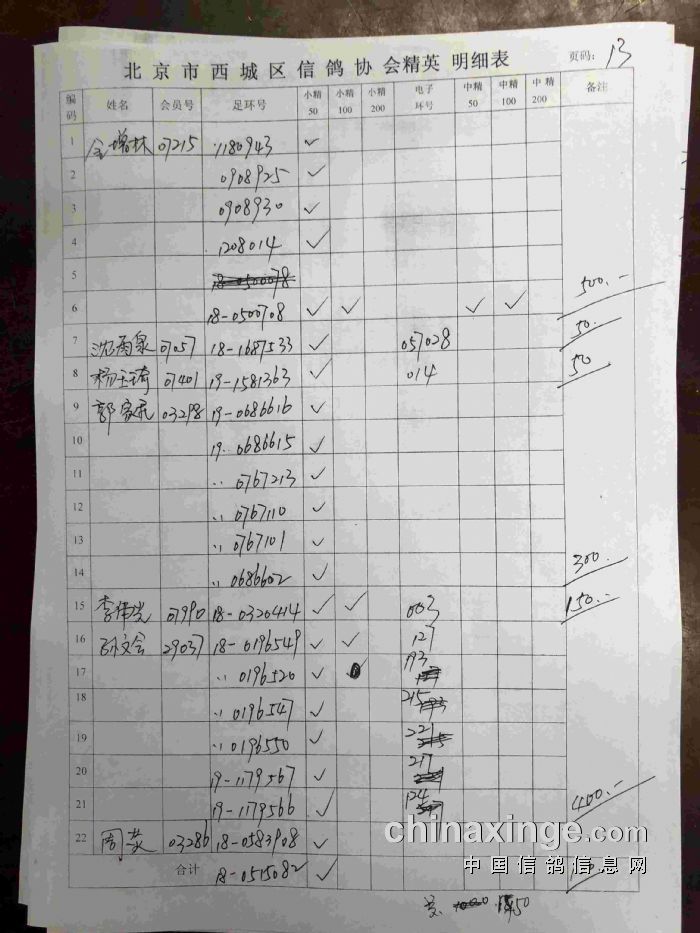 北京市西城区信鸽协会精英 明细表 页码: 13
编码 姓名 会员号 足环号 小精50 小精100 小精200 电子环号 中精50 中精100 中精200 备注
1 07215 1180943 ✓
2 0908925 ✓
3 0908930 ✓
4 1208014 ✓
5 18-0500078
6 18-0500708 ✓ ✓ ✓ ✓ 500.-
7 沈雨泉 07057 18-1687533 ✓ 057028 50.
8 杨玉琦 07401 19-1581363 ✓ 014 50
9 03298 19-0686616 ✓
10 19.. 0686615 ✓
11 〃 0767213 ✓
12 〃 0767110 ✓
13 〃 0767101 ✓
14 〃 0686602 ✓ 300.
15 07990 18-0320414 ✓ ✓ 003 150.-
16 孙文会 29037 18-0196549 ✓ ✓ 127
17 〃 0196520 ✓ 193
18 〃 0196547 ✓ 215
19 〃 0196550 ✓ 221
20 19-1179567 ✓ 217
21 19-1179566 ✓ 124 400.-
22 03286 18-0583908 ✓
合计 18-0515082 ✓
chinaxinge.com
中国信鸽信息网